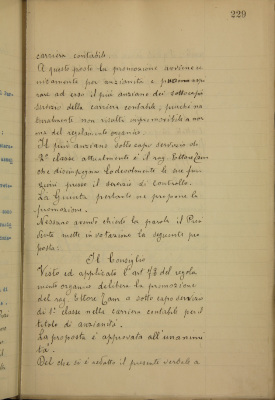 229
carriera contabile.
A questo posto la promozione avviene u-
nicamente per anzianità e
ad esso il più anziano dei sottocapi
servizio della carriera contabile, purchè na
turalmente non risulti improvvedibile a nor
ma del regolamento organico.
Il più anziano sottocapo servizio di
2ª classe attualmente è il rag. Ettore Zam
che disimpegna lodevolmente le sue fun
zioni presso il servizio di Controllo.
La Giunta pertanto ne propone la
promozione.
Nessuno avendo chiesto la parola il Presi
dente mette in votazione la seguente pro
posta:
Il Consiglio
Visto ed applicato l'art. del regola
mento organico delibera la promozione
del rag. Ettore Zam a sotto capo servizio
di 1ª classe nella carriera contabile per il
titolo di anzianità.
La proposta è approvata all'unanimi
tà.
Del che si è redatto il presente verbale a